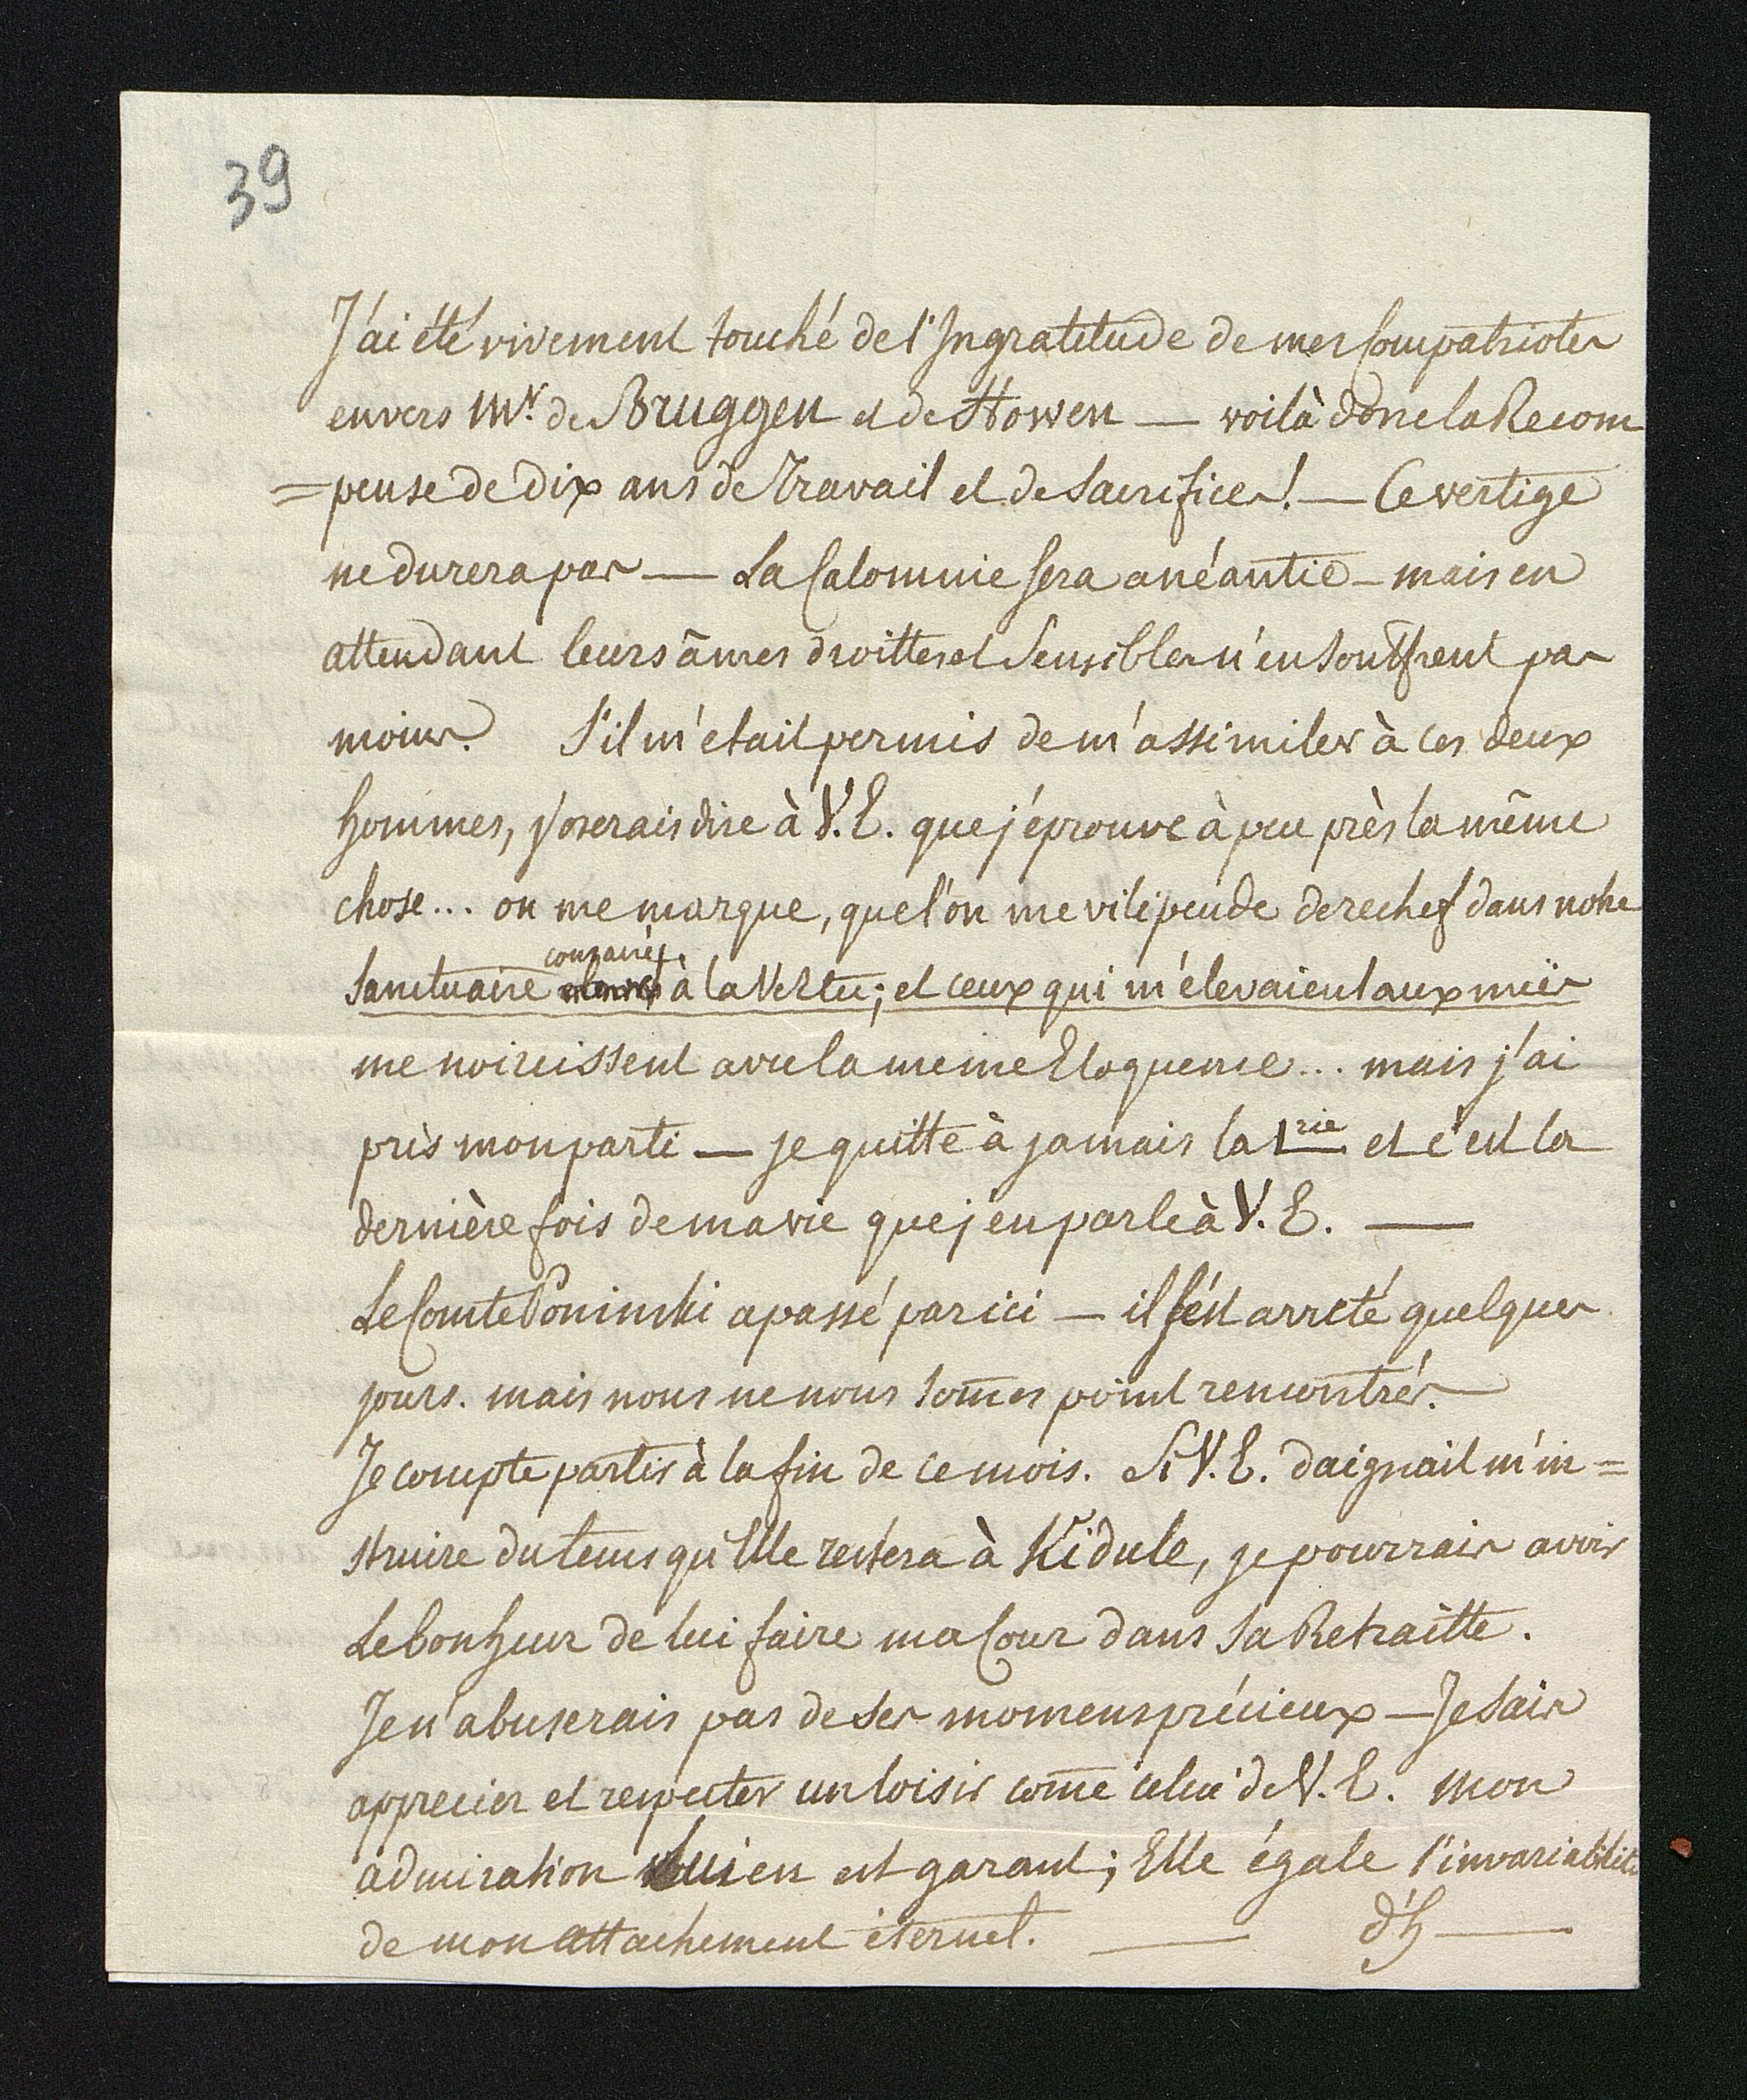 39
J'ai été vivement touché de l'Ingratitude de mes Compatriotes
envers Mr. de Bruggen et de Howen — voilà donc la Recom
=pense de dix ans de Travail et de Sacrifices! — Ce vertige
ne durera pas — La Calomnie sera anéantie — mais en
attendant leurs âmes droittes et Sensibles n'en souffrent pas
moins. S'il m'etait permis de m'assimiler à ces deux
hommes, j'oserais dire à V. E. que j'éprouve à peu près la même
chose... on me marque, que l'on me vilipende derechef dans notre
consacré
Sanctuaire à la Vertu; et ceux qui m'élevaient aux nües
me noircissent avec la meme Eloquence... mais j'ai
pris mon parti — je quitte à jamais la 1rie et c'est la
dernière fois de ma vie que j'en parle à V. E. —
Le Comte Poninski a passé par ici — il s'est arreté quelques
jours. mais nous ne nous som̄es point rencontrés.
Je compte partir à la fin de ce mois. Si V. E. daignait m'in=
struire du tems qu'Elle restera à Kidule, je pourrais avoir
Le bonheur de lui faire ma Cour dans Sa Retraitte.
Je n'abuserais pas de ses momens précieux — Je sais
apprecier et respecter un loisir com̄e celui de V. E. Mon
admiration Lui en est garant; Elle égale l'invariabilité
de mon attachement éternel. — d'h —